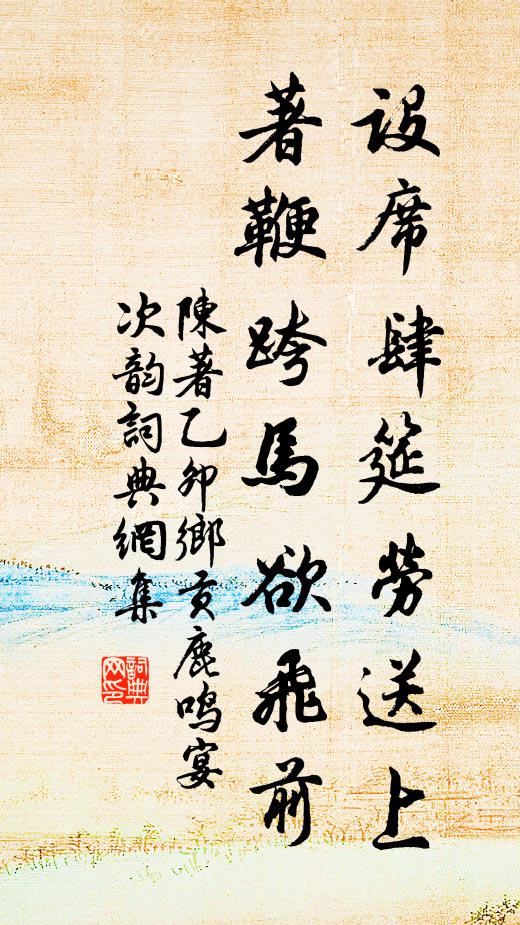 設席肆筵勞送上
著鞭跨馬欲飛前
陳著乙卯鄉貢鹿鳴宴
次韵詞典網集
詞典网印